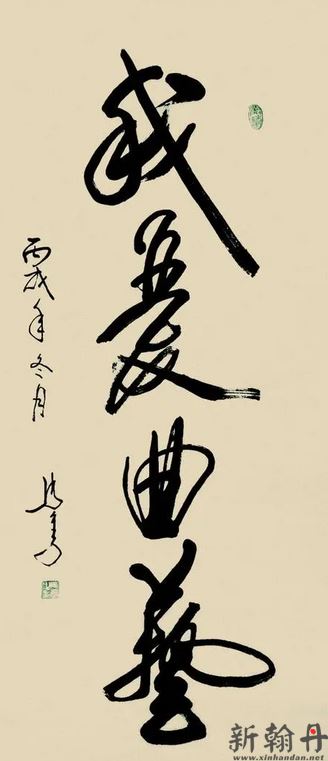 我爱曲藝
丙戌年冬月
新翰丹
www.xinhandan.com